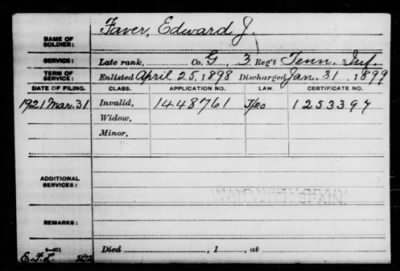 NAME OF SOLDIER: Faver, Edward J.
SERVICE: Late rank, Co. G, 3 Reg't Tenn. Inf.
TERM OF SERVICE: Enlisted April 25, 1898 Discharged Jan. 31, 1899
DATE OF FILING. CLASS. APPLICATION NO. LAW. CERTIFICATE NO.
1921 Mar. 31 Invalid, 1448761 1253397
Widow,
Minor,
ADDITIONAL SERVICES:
WAR WITH SPAIN
REMARKS:
Died , 1 , at